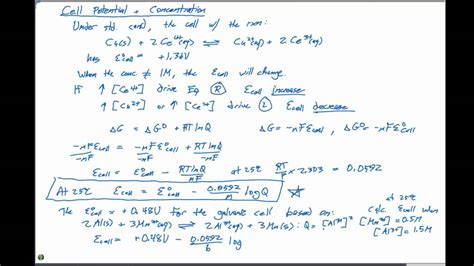 Cell Potential + Concentration
Under std. cond, the cell w/ the rxn:
Cu(s) + 2Ce⁴⁺(aq) ⇌ Cu²⁺(aq) + 2Ce³⁺(aq)
has ℰ°cell = +1.36V
When the conc ≠ 1M, the Ecell will change.
If ↑ [Ce⁴⁺] drive Eq Ⓡ Ecell increase
↑ [Cu²⁺] or ↑ [Ce³⁺] drive Ⓛ Ecell decrease
ΔG = ΔG° + RTlnQ ΔG = -nFEcell, ΔG° = -nFE°cell
-nFEcell/-nF = -nFE°cell/-nF + RTlnQ/-nF at 25°C RT/F × 2.303 = 0.0592
At 25°C Ecell = E°cell - 0.0592/n logQ
The E°cell = +0.48V for the galvanic cell based on:
2Al(s) + 3Mn²⁺(aq) ⇌ 2Al³⁺(aq) + 3Mn(s) : Q = [Al³⁺]²
Ecell = +0.48V - 0.0592/6 log
at 25°C
Calc. Ecell when
[Mn²⁺] = 0.5M
[Al³⁺] = 1.5M